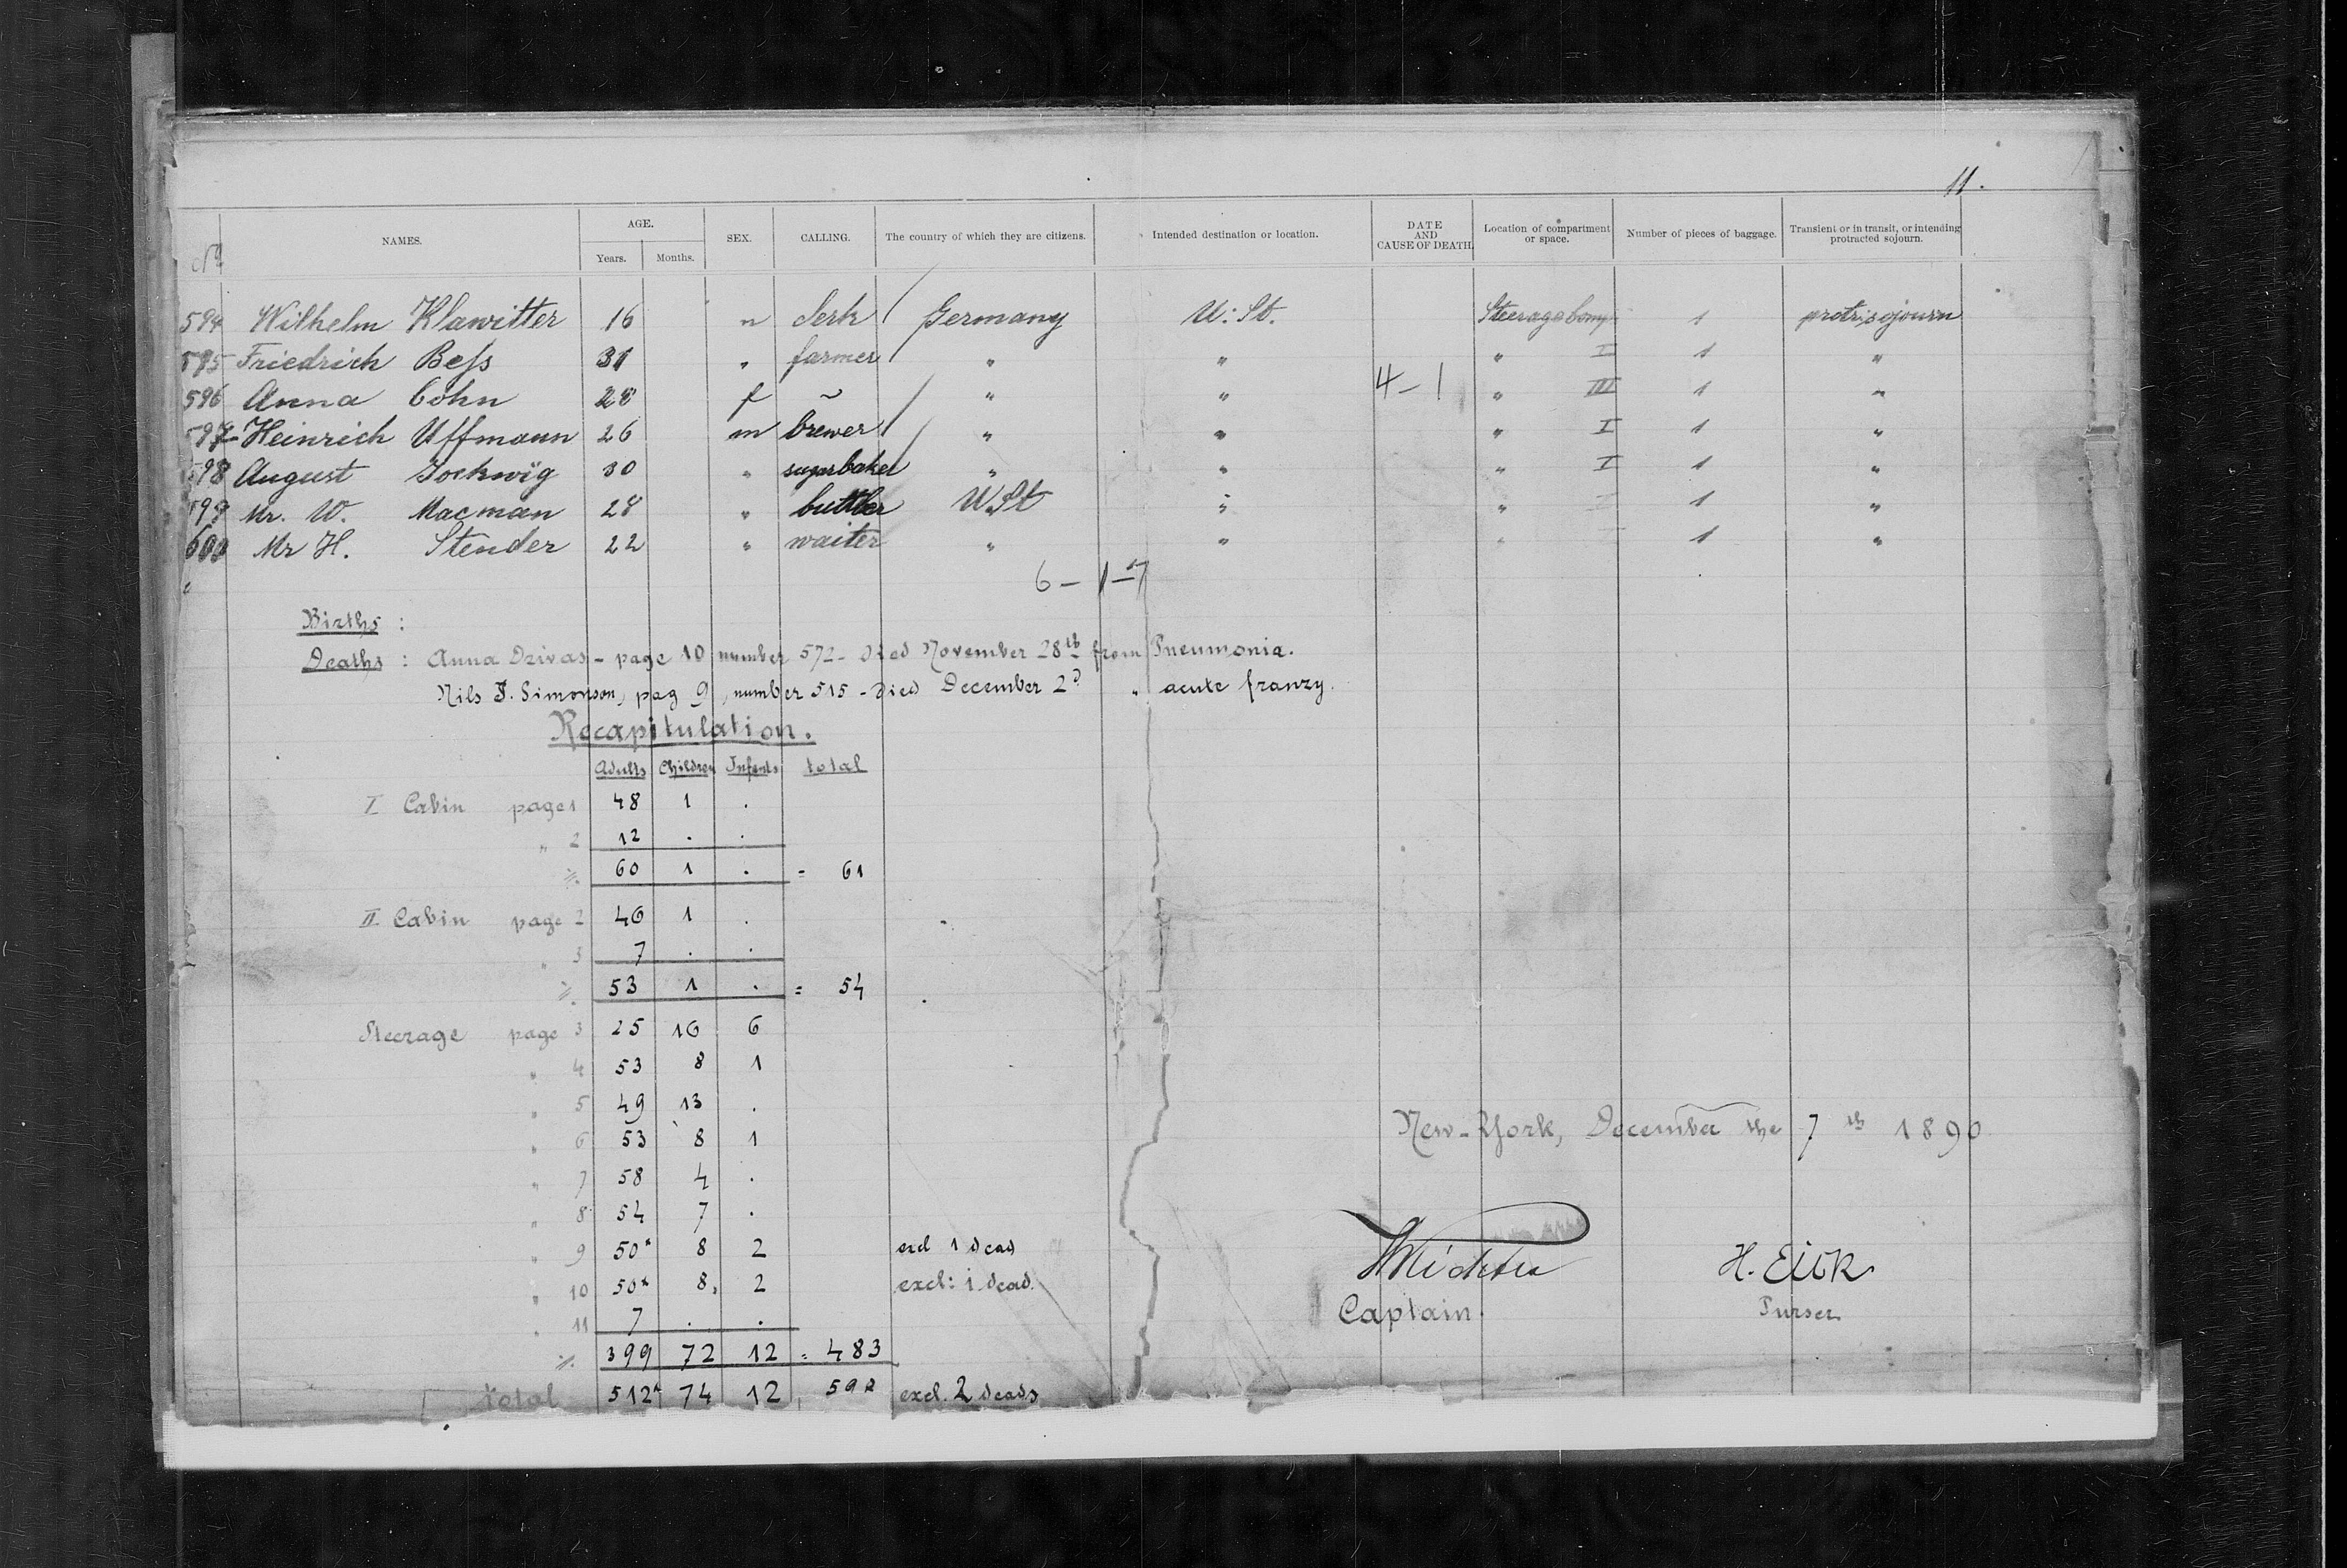 11.
No. NAMES. AGE. Years. Months. SEX. CALLING. The country of which they are citizens. Intended destination or location. DATE AND CAUSE OF DEATH. Location of compartment or space. Number of pieces of baggage. Transient or in transit, or intending protracted sojourn.
594 Wilhelm Klawitter 16 m clerk Germany U: St. Steerage comp. 1 protr. sojourn
595 Friedrich Beſs 31 " farmer " " " I 1 "
596 Anna Cohn 28 f ~ " " 4-1 " III 1 "
597 Heinrich Uffmann 26 m brewer " " " I 1 "
598 August 30 " sugarbaker " " " I 1 "
599 Mr. W. Macman 28 " buttler U.St " " I 1 "
600 Mr H. Stender 22 " waiter " " " 1 "
6-1-7
Births :
Deaths : Anna Drivas - page 10 number 572 - died November 28th from Pneumonia.
Nils J. Simonson, pag 9, number 515 - died December 2d " acute franzy.
Recapitulation.
Adults Children Infants total
I Cabin page 1 48 1 .
" 2 12 . .
%. 60 1 . = 61
II. Cabin page 2 46 1 .
" 3 7 . .
%. 53 1 . = 54
Steerage page 3 25 16 6
" 4 53 8 1
" 5 49 13 .
" 6 53 8 1
" 7 58 4 .
" 8 54 7 .
" 9 50* 8 2 excl 1 dead
" 10 50* 8, 2 excl: 1 dead.
" 11 7 . .
%. 399 72 12 = 483
total 512* 74 12 598 excl. 2 deads
New-York, December the 7th 1890
H. Eick
Captain. Purser